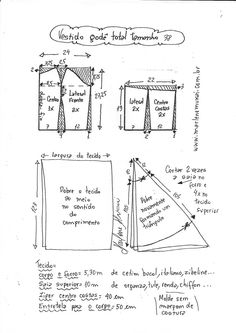 Vestido godê total tamanho 38
24
Lateral
Frente
2x
Centro
1x
7
12
22
Centro
Costas
2x
Lateral
Costas
2x
10
12
www.marlenemukai.com.br
Largura do tecido
Dobre o tecido
ao meio
no sentido
do comprimento
Dobre novamente
formando um
triângulo
Cortar 2 vezes
a saia no
forro e
no tecido
superior
Tecido:
corpo e forro = 3,30m de cetim bucol, italiano, zibeline...
Saia superior 10m de organza, tule, renda, chiffon...
Zíper centro costas = 40 cm
Entretela para o corpo = 50 cm
Molde sem
margem de
costura